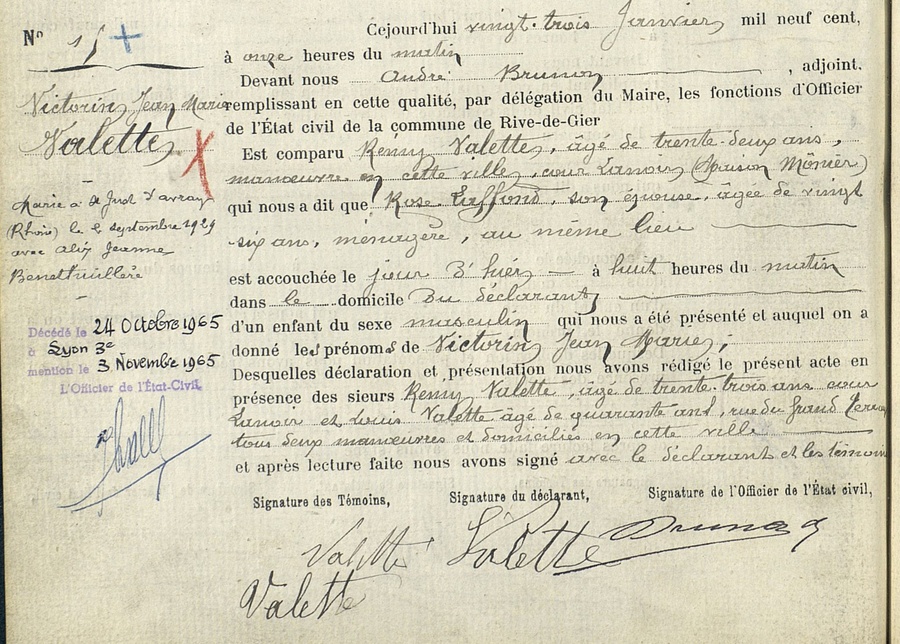 Nº 15 +
Victorin, Jean Marie
Valette
X
Marié à St Just d'avray
(Rhône) le 2 septembre 1929
avec Alix Jeanne
Décédé le 24 Octobre 1965
à Lyon 3e
mention le 3 Novembre 1965
L'Officier de l'État-Civil,
Cejourd'hui vingt-trois Janvier mil neuf cent,
à onze heures du matin
Devant nous André Brunon, adjoint,
remplissant en cette qualité, par délégation du Maire, les fonctions d'Officier
de l'État civil de la commune de Rive-de-Gier
Est comparu Rémy Valette, âgé de trente-deux ans,
manœuvre en cette ville, cour Lanoir (Maison Monier)
qui nous a dit que Rose Laffond, son épouse, âgée de vingt
six ans, ménagère, au même lieu
est accouchée le jour d'hier à huit heures du matin
dans le domicile du déclarant
d'un enfant du sexe masculin qui nous a été présenté et auquel on a
donné les prénoms de Victorin, Jean Marie;
Desquelles déclaration et présentation nous avons rédigé le présent acte en
présence des sieurs Rémy Valette, âgé de trente-trois ans cour
Lanoir et Louis Valette âgé de quarante ans, rue du Grand
tous deux manœuvres et domiciliés en cette ville
et après lecture faite nous avons signé avec le déclarant et les témoins
Signature des Témoins, Signature du déclarant, Signature de l'Officier de l'État civil,
Valette Valette Brunon
Valette